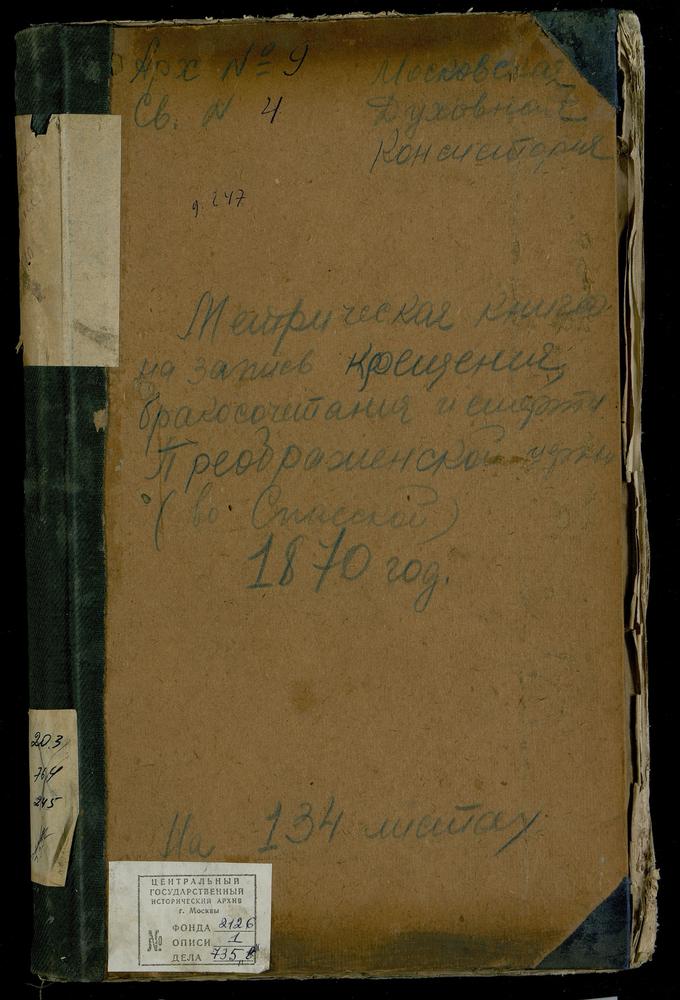 Арх № 9
Св. N 4
Московская
Духовная
Консистория
д. 247
Метрическая книга
на запись крещения,
бракосочетания и смерти
Преображенской церкви
(во Спасской)
1870 год.
На 134 листах
203
764
245
ЦЕНТРАЛЬНЫЙ
ГОСУДАРСТВЕННЫЙ
ИСТОРИЧЕСКИЙ АРХИВ
г. Москвы
№
ФОНДА 2126
ОПИСИ 1
ДЕЛА 735